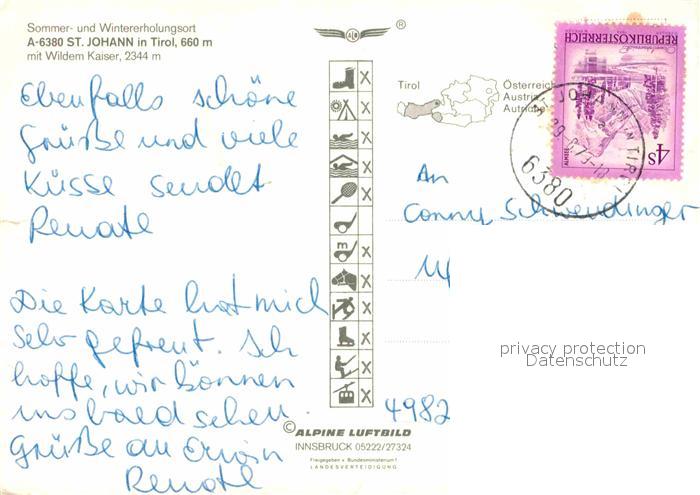 Sommer- und Wintererholungsort
A-6380 ST. JOHANN in Tirol, 660 m
mit Wildem Kaiser, 2344 m
Ebenfalls schöne
Grüße und viele
Küsse sendet
Renate
Die Karte hat mich
sehr gefreut. Ich
hoffe, wir können
uns bald sehen.
Grüße an
Renate
®
X
X
X
X
X
m X
X
X
X
X
X
Tirol
Österreich
Austria
Autriche
REPUBLIK ÖSTERREICH
4S
ALMSEE
ST. JOHANN IN TIROL
6380
An
Conny Schwendinger
4982
privacy protection
Datenschutz
© ALPINE LUFTBILD
INNSBRUCK 05222/27324
Freigegeben v. Bundesministerium f.
LANDESVERTEIDIGUNG